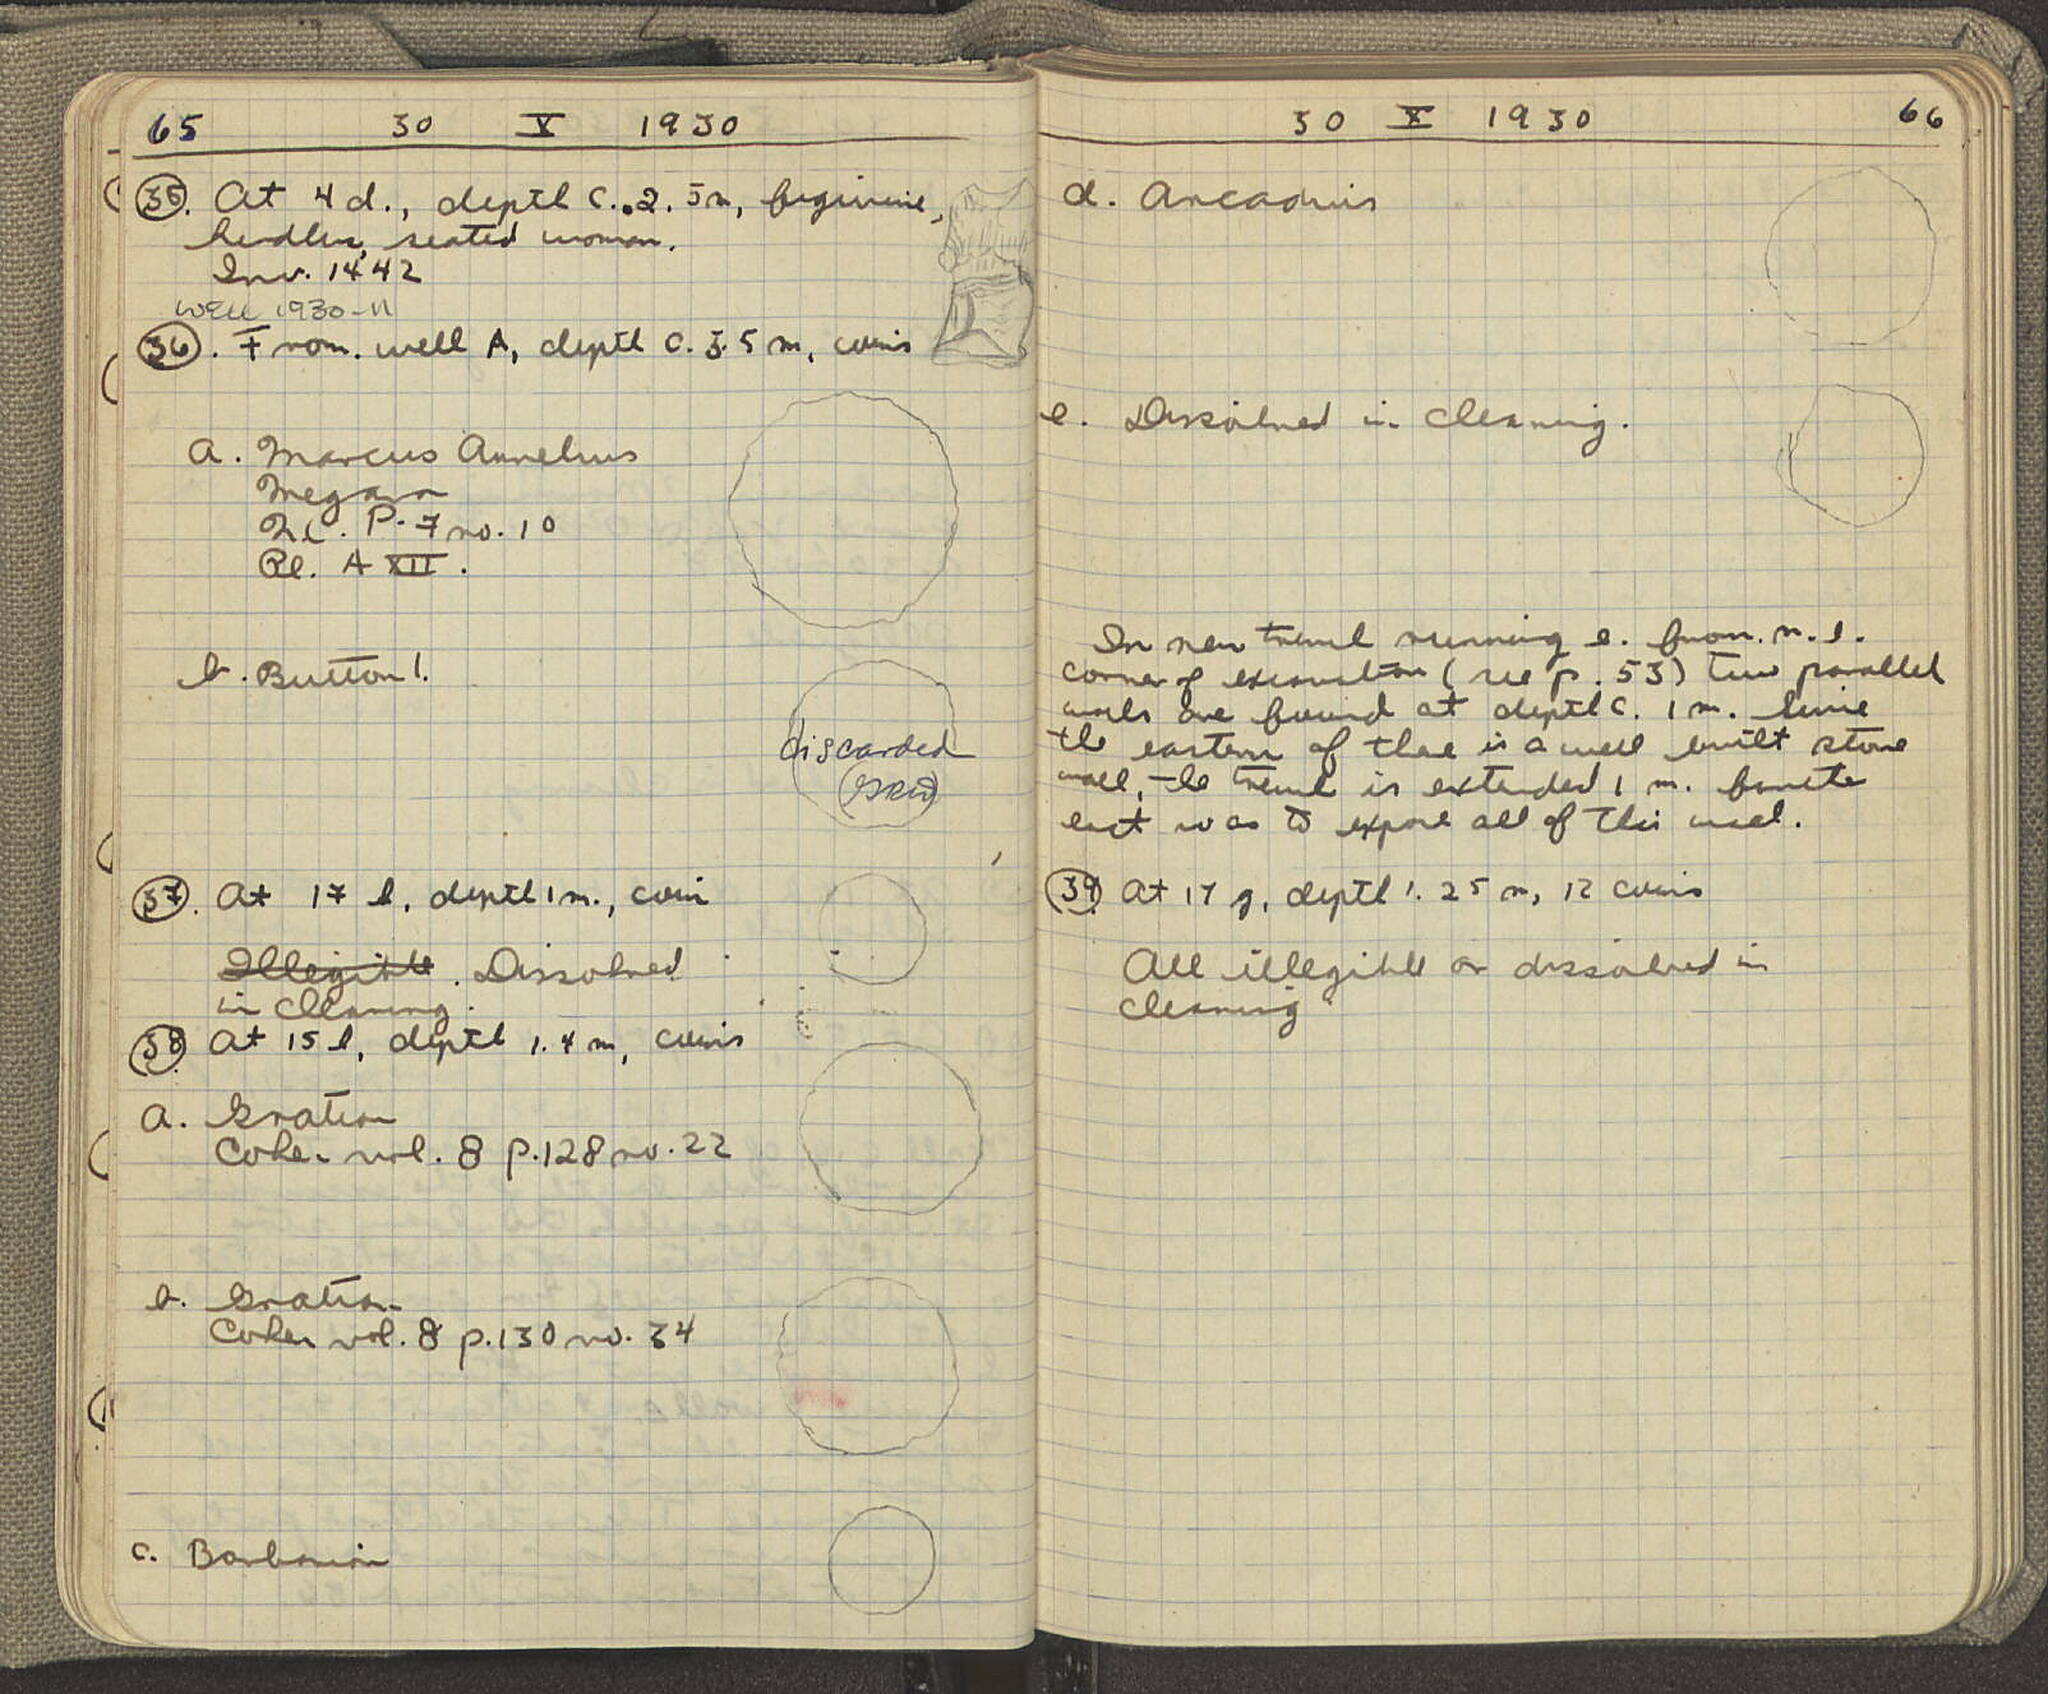 65 30 V 1930
35. At 4 d., depth c. 2.5 m, figurine,
headless, seated woman.
Inv. 1442
Well 1930-11
36. From well A, depth c. 3.5 m, coins
a. Marcus Aurelius
Megara
NC. P. 7 no. 10
Pl. A XII.
b. Button!.
discarded
37. At 17 l, depth 1 m., coin
Illegible. Dissolved
in cleaning.
38. At 15 l, depth 1.4 m, coins
a. Gratian
Cohen vol. 8 p. 128 no. 22
b. Gratian
Cohen vol. 8 p. 130 no. 34
c. Barbarian
30 X 1930 66
d. Arcadius
e. Dissolved in cleaning.
In new trench running e. from n. e.
corner of excavation (see p. 53) two parallel
walls are found at depth c. 1 m. Since
the eastern of these is a well built stone
wall, the trench is extended 1 m. farther
east so as to expose all of this wall.
39. At 17 g, depth 1.25 m, 12 coins
All illegible or dissolved in
cleaning